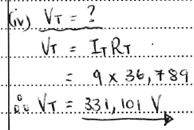 (iv) V_T = ?
V_T = I_T R_T
= 9 × 36,789
∴ V_T = 331,101 V